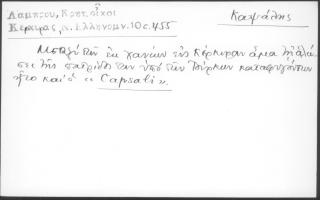 Λάμπρου, Κρητ. οἶκοι
Κερκύρας, ν. Ἑλληνομν. 10 σ. 455
Καψάλης
Μεταξὺ τῶν ἐκ Χανίων εἰς Κέρκυραν ἅμα τῇ ἁλώ-
σει τῆς πατρίδος των ὑπὸ τῶν Τούρκων καταφυγόντων
ἦτο καὶ ὁ « Capsali ».